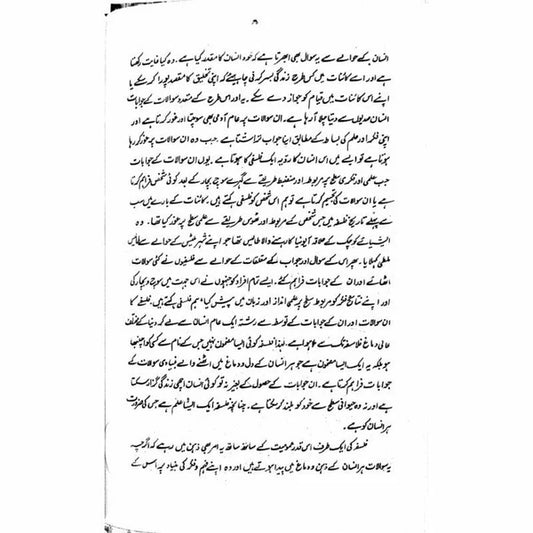 ۵
انسان کے حوالے سے یہ سوال بھی ابھرتا ہے کہ خود انسان کا مقصد کیا ہے۔ وہ کیا غایت رکھتا
ہے اور اسے کائنات میں کس طرح زندگی بسر کرنی چاہیئے کہ اپنی تخلیق کا مقصد پورا کر سکے یا
اپنے اس کائنات میں قیام کو جواز دے سکے۔ یہ اور اس طرح کے متعدد سوالات کے جوابات
انسان صدیوں سے دیتا چلا آ رہا ہے۔ ان سوالات پر عام آدمی بھی سوچتا اور غور کرتا ہے اور
اپنی فکر اور علم کی بساط کے مطابق اپنا جواب تراشتا ہے۔ جب وہ ان سوالات پر غور کر رہا
ہوتا ہے تو ایسے میں اس انسان کا رویہ ایک فلسفی کا ہوتا ہے۔ یوں ان سوالات کے جوابات
جب علمی اور فکری سطح پر مربوط اور منضبط طریقے سے گہرے سوچ بچار کے بعد کوئی شخص فراہم کرتا
ہے یا ان سوالات کی تجسیم کرتا ہے تو ہم اس شخص کو فلسفی کہتے ہیں۔ کائنات کے بارے میں سب
سے پہلے تاریخ فلسفہ میں جس شخص نے مربوط اور ٹھوس طریقے سے علمی سطح پر غور کیا تھا۔ وہ
ایشیائے کوچک کے علاقہ آیونیا کا رہنے والا طالیس تھا جو اپنے شہر ملیٹس کے حوالے سے طالیس
ملطی کہلایا۔ پھر اس کے سوال اور جواب کے متعلقات کے حوالے سے فلسفیوں نے سوالات
اٹھائے اور ان کے جوابات فراہم کئے۔ ایسے تمام افراد کو جنہوں نے اس جہت میں سوچ و بچار کی
اور اپنے نتائج فکر کو مربوط سطح پر علمی انداز اور زبان میں پیش کیا، ہم فلسفی کہتے ہیں۔ فلسفے کا
ان سوالات اور ان کے جوابات کے توسط سے رشتہ ایک عام انسان سے لے کر دنیا کے مختلف
عالی دماغ فلاسفہ تک سے ہوا ہے۔ لہٰذا فلسفہ کوئی ایسا مضمون نہیں جس کے نام سے کسی کو اچنبھا
ہو بلکہ یہ ایک ایسا مضمون ہے جو ہر انسان کے دل و دماغ میں اٹھنے والے بنیادی سوالات کے
جوابات فراہم کرتا ہے۔ ان جوابات کے حصول کے بغیر نہ تو کوئی انسان اچھی زندگی گزار سکتا
ہے اور نہ وہ حیوانی سطح سے خود کو بلند کر سکتا ہے۔ چنانچہ فلسفہ ایک ایسا علم ہے جس کی ضرورت
ہر انسان کو ہے۔
فلسفہ کی ایک طرف اس قدر عمومیت کے ساتھ ساتھ یہ امر بھی ذہن میں رہے کہ اگرچہ
یہ سوالات ہر انسان کے ذہن و دماغ میں پیدا ہوتے ہیں اور وہ اپنے فہم و فکر کی بنیاد پر اس کے